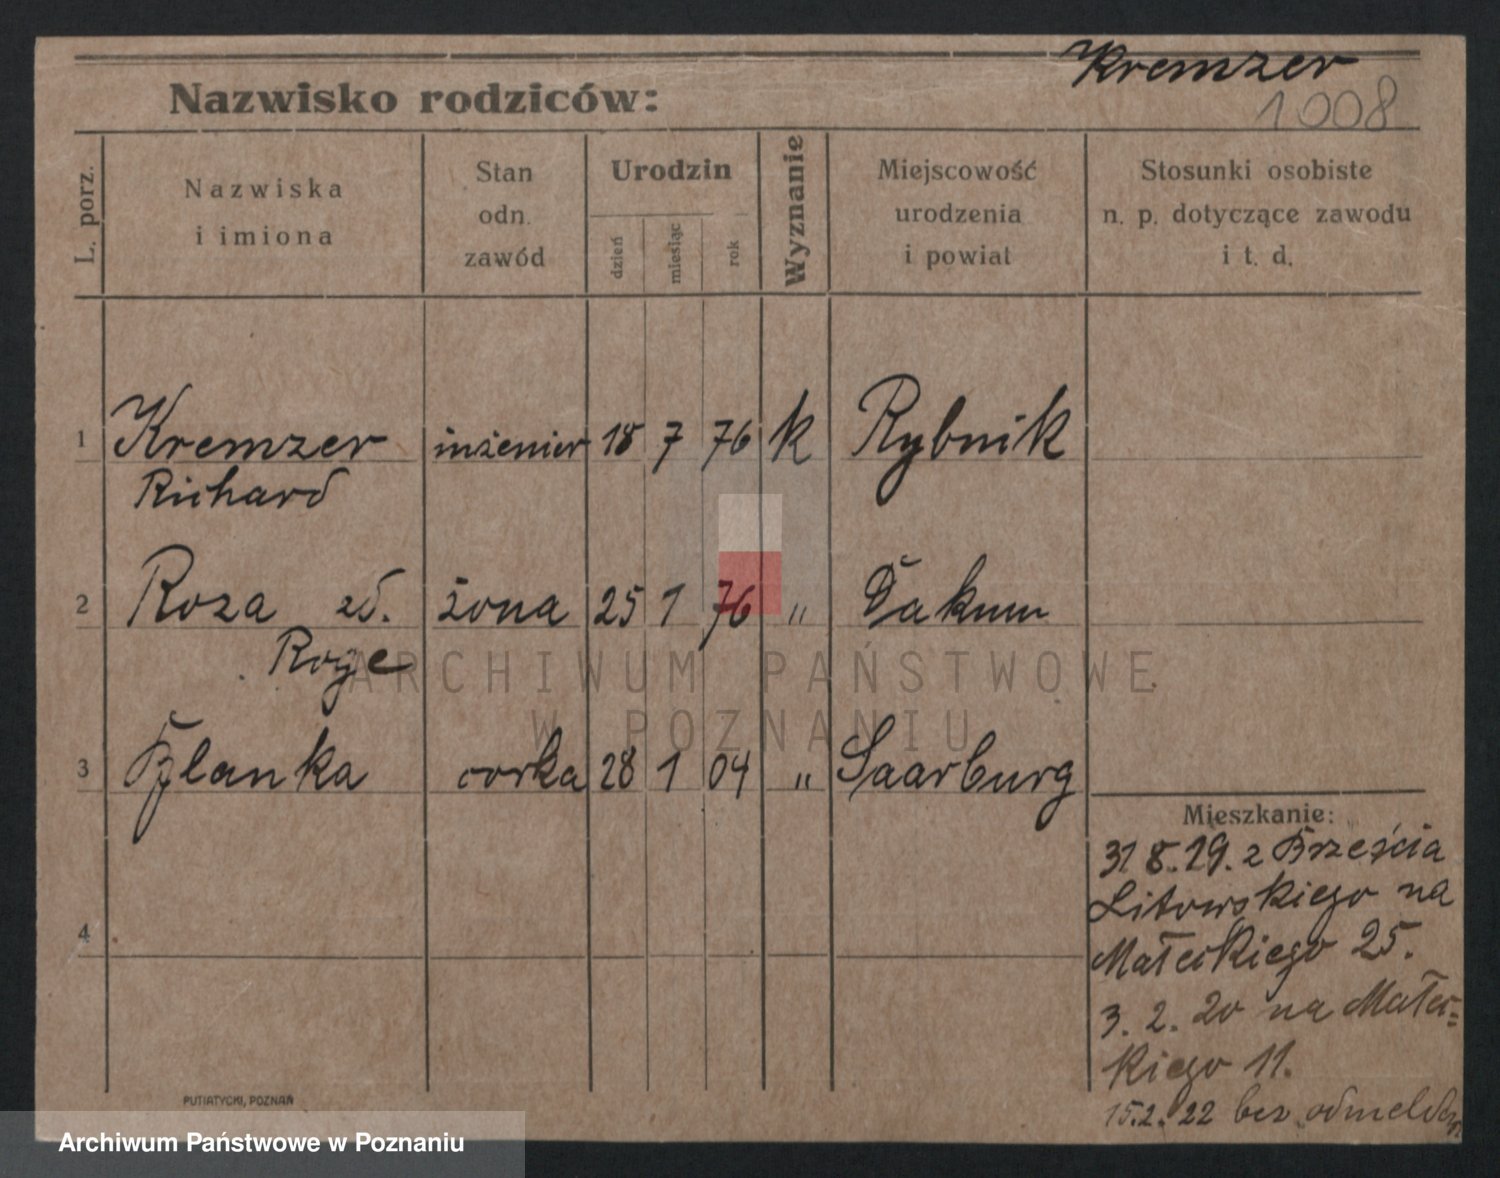 Kremzer
1008
Nazwisko rodziców:
L. porz.
Nazwiska
i imiona
Stan
odn.
zawód
Urodzin
dzień
miesiąc
rok
Wyznanie
Miejscowość
urodzenia
i powiat
Stosunki osobiste
n. p. dotyczące zawodu
i t. d.
1 Kremzer inżenier 18 7 76 k Rybnik
Richard
2 Roza zd. żona 25 1 76 "
Roge
3 corka 28 1 04 " Saarburg
Mieszkanie:
31 8. 19. z Brześcia
Litowskiego na
Małeckiego 25.
4
3. 2. 20 na Małec=
kiego 11.
15.2.22 bez odmeldn
PUTIATYCKI, POZNAŃ
ARCHIWUM PAŃSTWOWE
W POZNANIU
Archiwum Państwowe w Poznaniu